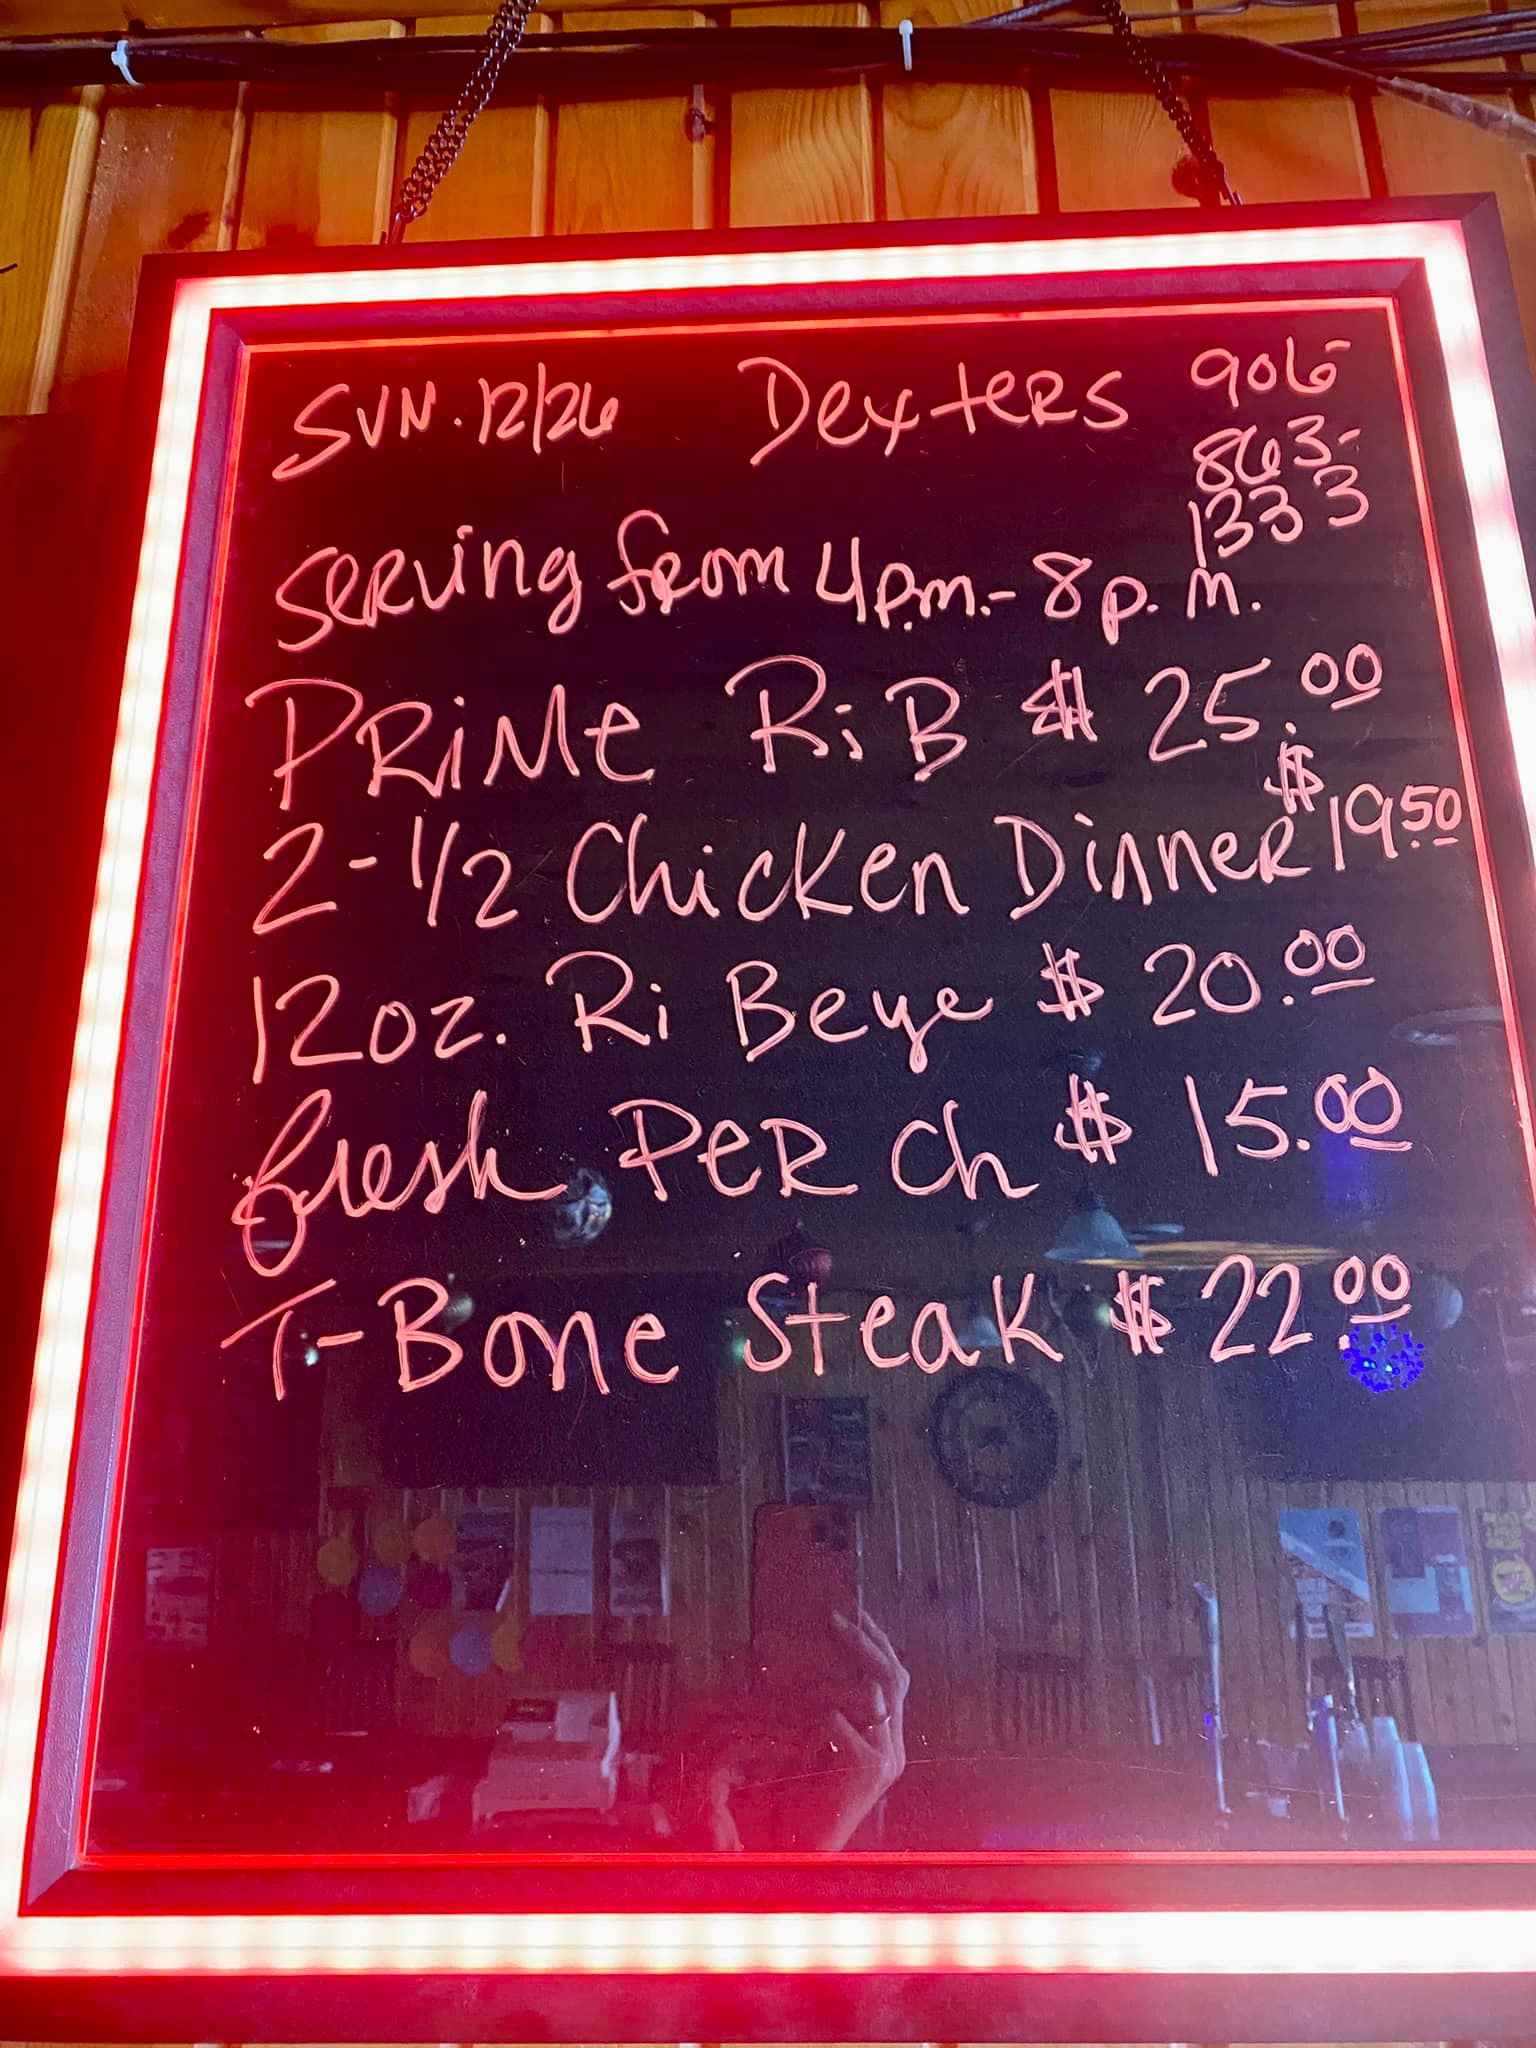 SUN. 12/26 Dexters 906-
863-
1333
Serving from 4p.m.- 8p.m.
PRiMe RiB $ 25.00
2-1/2 Chicken Dinner $19.50
12oz. Ri Beye $ 20.00
fresh PeRch $ 15.00
T-Bone Steak $ 22.00